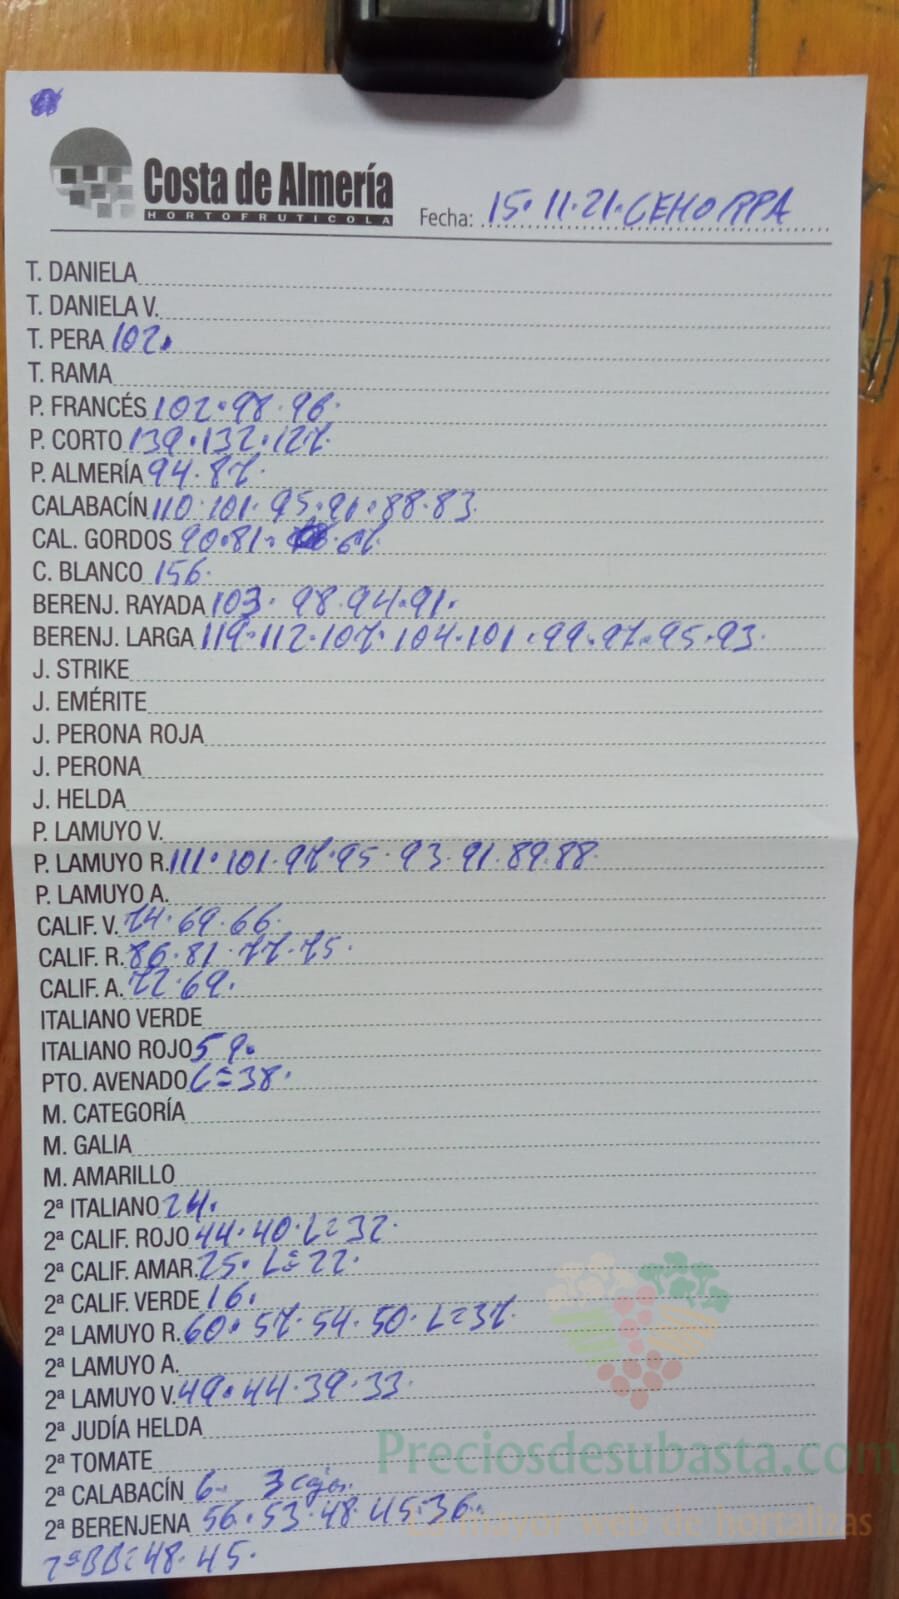 Costa de Almería
HORTOFRUTICOLA
Fecha: 15.11.21.CEHORPA
T. DANIELA
T. DANIELA V.
T. PERA 102.
T. RAMA
P. FRANCÉS 102.98.96.
P. CORTO 139.132.127.
P. ALMERÍA 94.87.
CALABACÍN 110.101.95.91.88.83.
CAL. GORDOS 90.81. 67.
C. BLANCO 156.
BERENJ. RAYADA 103.98.94.91.
BERENJ. LARGA 119.112.107.104.101.99.97.95.93.
J. STRIKE
J. EMÉRITE
J. PERONA ROJA
J. PERONA
J. HELDA
P. LAMUYO V.
P. LAMUYO R. 111.101.97.95.93.91.89.88.
P. LAMUYO A.
CALIF. V. 74.69.66.
CALIF. R. 86.81.77.75.
CALIF. A. 72.69.
ITALIANO VERDE
ITALIANO ROJO 59.
PTO. AVENADO L=38.
M. CATEGORÍA
M. GALIA
M. AMARILLO
2ª ITALIANO 24.
2ª CALIF. ROJO 44.40.L=32.
2ª CALIF. AMAR. 25.L=22.
2ª CALIF. VERDE 16.
2ª LAMUYO R. 60.57.54.50.L=37.
2ª LAMUYO A.
2ª LAMUYO V. 49.44.39.33.
2ª JUDÍA HELDA
2ª TOMATE
Preciosdesubasta.com
2ª CALABACÍN 6- 3 cajas.
2ª BERENJENA 56.53.48.45.36.
La mayor web de hortalizas
2ªBB=48.45.